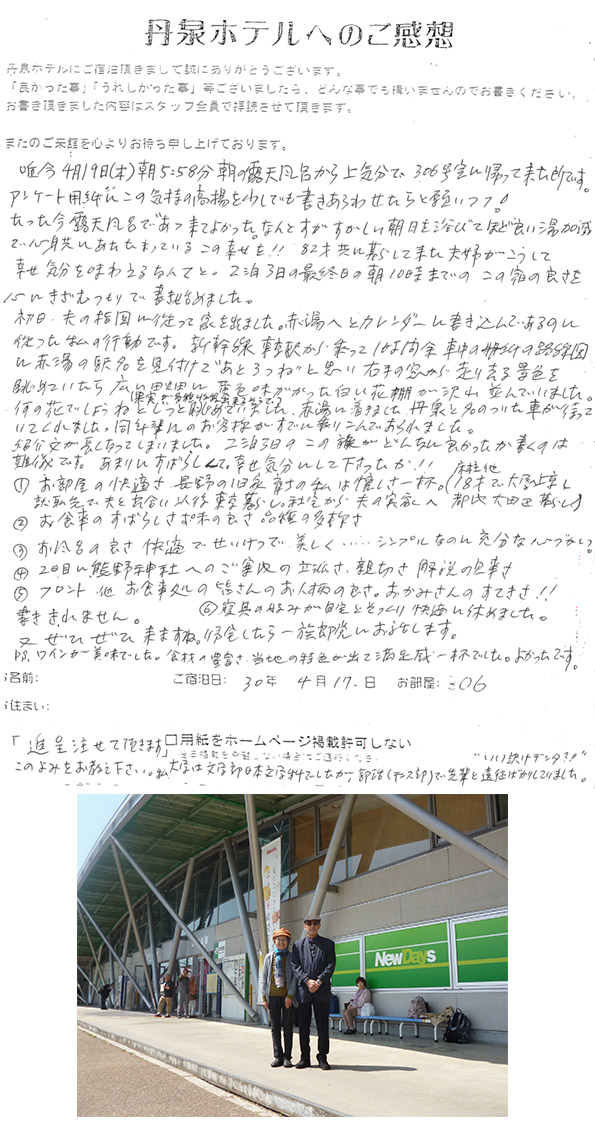 丹泉ホテルへのご感想
丹泉ホテルにご宿泊頂きまして誠にありがとうございます。
「良かった事」「うれしかった事」等ございましたら、どんな事でも構いませんのでお書きください。
お書き頂きました内容はスタッフ全員で拝読させて頂きます。
またのご来館を心よりお待ち申し上げております。
唯今4月19日(木)朝5:58分 朝の露天風呂から上気分で、306号室に帰って来た所です。
アンケート用紙にこの気持の高揚を少しでも書きあらわせたらと願いつつ!
たった今露天風呂であつ来てよかった。なんとすがすがしい朝日を浴びてほど良い湯加減
で心身共にあたたまっているこの幸せを!! 82才共に暮らして来た夫婦がこうして
幸せ気分を味わえるなんてと。2泊3日の最終日の朝10時までのこの宿の良さを
心にきざむつもりで書き始めました。
初日、夫の指図に従って家を出ました。赤湯へとカレンダーに書き込んであるのに
従った私の行動です。新幹線 東京駅から乗って1時間余 車中の冊子の路線図
に赤湯の駅名を見付けて「あと3つね」と思い右手の窓から走り去る景色を
眺めていたら広い田畑に黄色味がかった白い花棚が沢山並んでいました。
何の花でしょうねとじっと眺めていました。赤湯に着きました 丹泉と名のついた車が待って
いてくれました。同年輩のお客様がすでに乗りこんでおられました。
紹介文が長くなってしまいました。2泊3日のこの旅がどんなに良かったか書くのは
難儀です。あまりにすばらしくて。幸せ気分にして下さったか!!
① お部屋の快適さ 長野の旧家育ちの私は懐しさ一杯。(18才で大学上京し
就職先で夫と出合い以後東京暮らし。社宅から夫の実家へ 都内大田区暮らし)
② お食事のすばらしさ 味の良さ 品種の多様さ
③ お風呂の良さ 快適でせいけつで、美しく……シンプルなのに充分な心づかい。
④ 2日目に熊野神社へのご案内の立派さ、親切さ 解説の見事さ
⑤ フロント、他 お食事処の皆さんのお人柄の良さ。おかみさんのすてきさ!!
書ききれません。 ⑥寝具の好みが自宅とそっくり 快適に休めました。
又 ぜひぜひ来ますね。帰宅したら一族郎党にお話します。
PS、ワインが美味でした。食材の豊富さ、当地の特色が出て満足感一杯でした。よかったです。
お名前: ご宿泊日: 30年 4月17日 お部屋: 306
お住まい:
□用紙をホームページ掲載許可しない
「進呈注せて頂きます」
このよみをお教え下さい。私、大学は文学部日本文学科でしたが、部活(テニス部)で先輩と遠征ばかりしていました。
NewDays